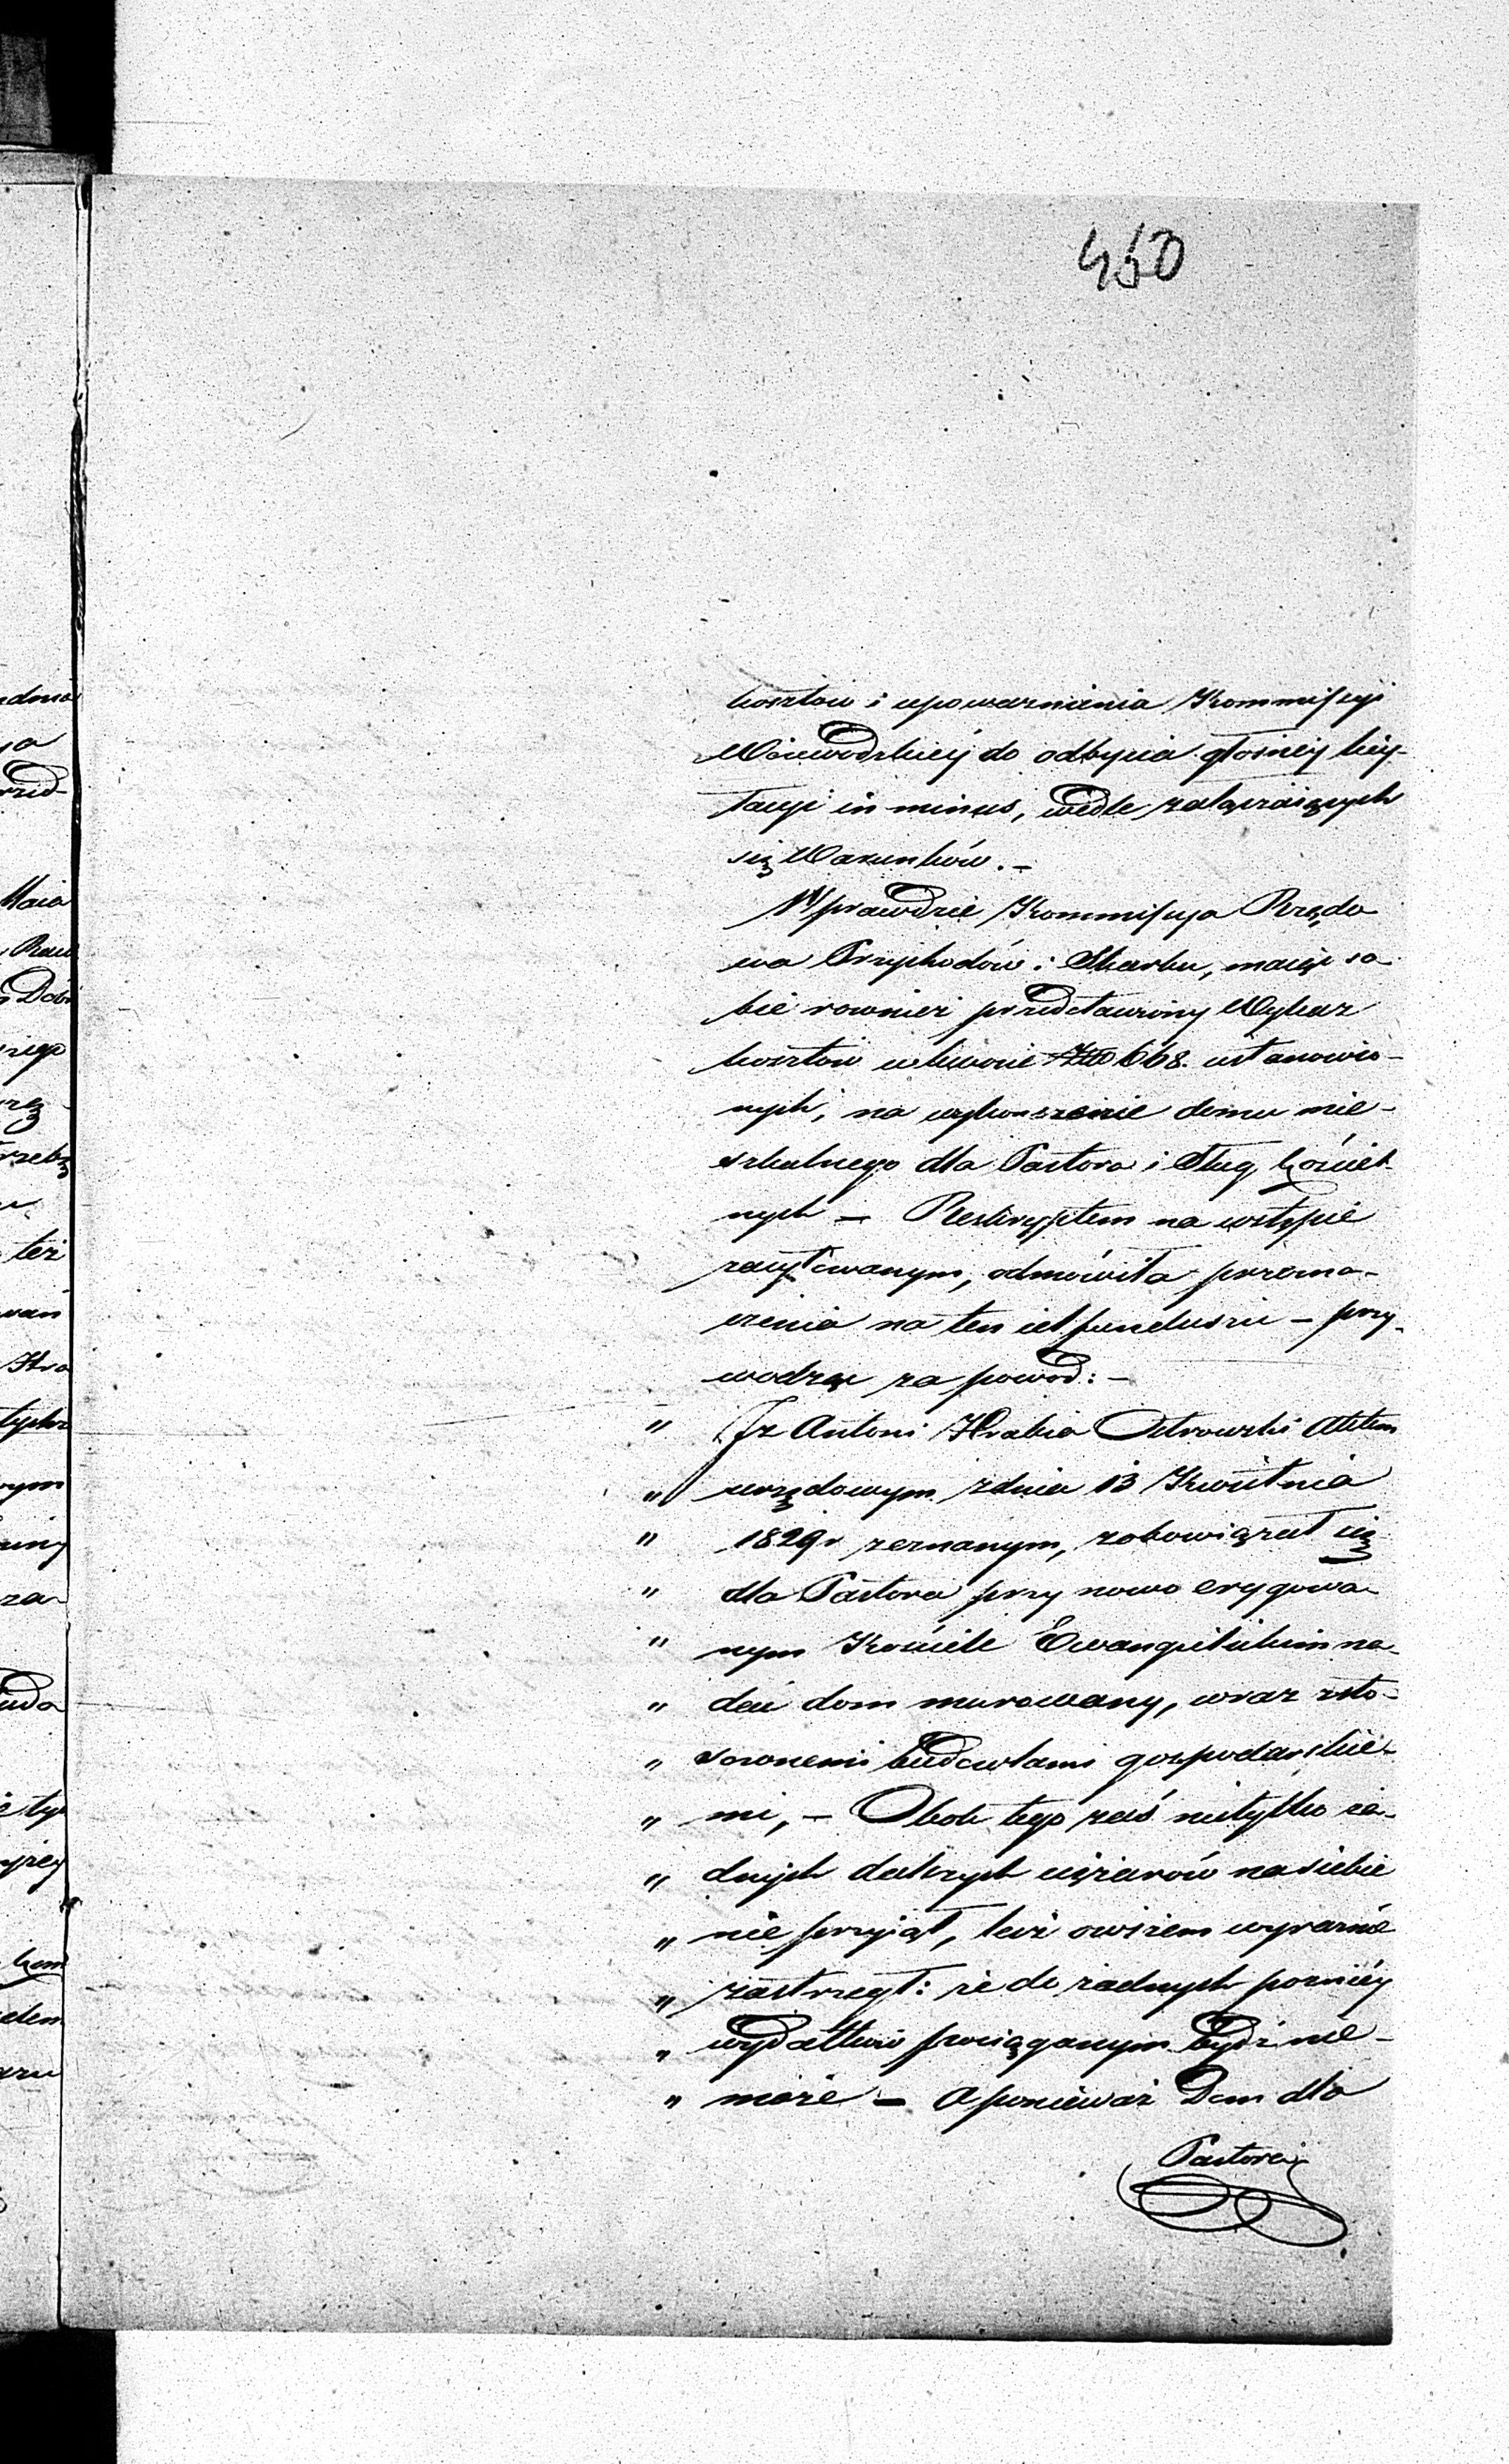 450
kosztow i upoważnienia Kommissyi
Woiewodzkiey do odbycia głośney licy-
tacyi in minus, wedle załączaiących
się Warunków. -
Wprawdzie Kommissya Rządo
wa Przychodów i Skarbu, maiąc so
bie rownież przedstawiony Wykaz
kosztów w kwocie 668. ustanowio-
nych, na wykończenie domu mie-
szkalnego dla Pastora i Sług kościel-
nych — Reskryptem na wstępie
zacytowanym, odmówiła przezna-
czenia na ten cel funduszu - przy-
wodząc za powod: -
" Iż Antoni Hrabia Ostrowski Aktem
" urzędowym z dnia 13 Kwietnia
" 1829 r zeznanym, zobowiązał się
" dla Pastora przy nowo erygowa-
" nym Kościele Ewangelickim na-
" dać dom murowany, wraz z sto-
" sownemi budowlami gospodarskie-
" mi, - Obok tego zaś nietylko ża-
" dnych dalszych ciężarów na siebie
" nie przyiął, lecz owszem wyraźnie
" zastrzegł: że do żadnych pozniey
" wydatków pociąganym bydź nie-
" może — A ponieważ Dom dla
Pastora